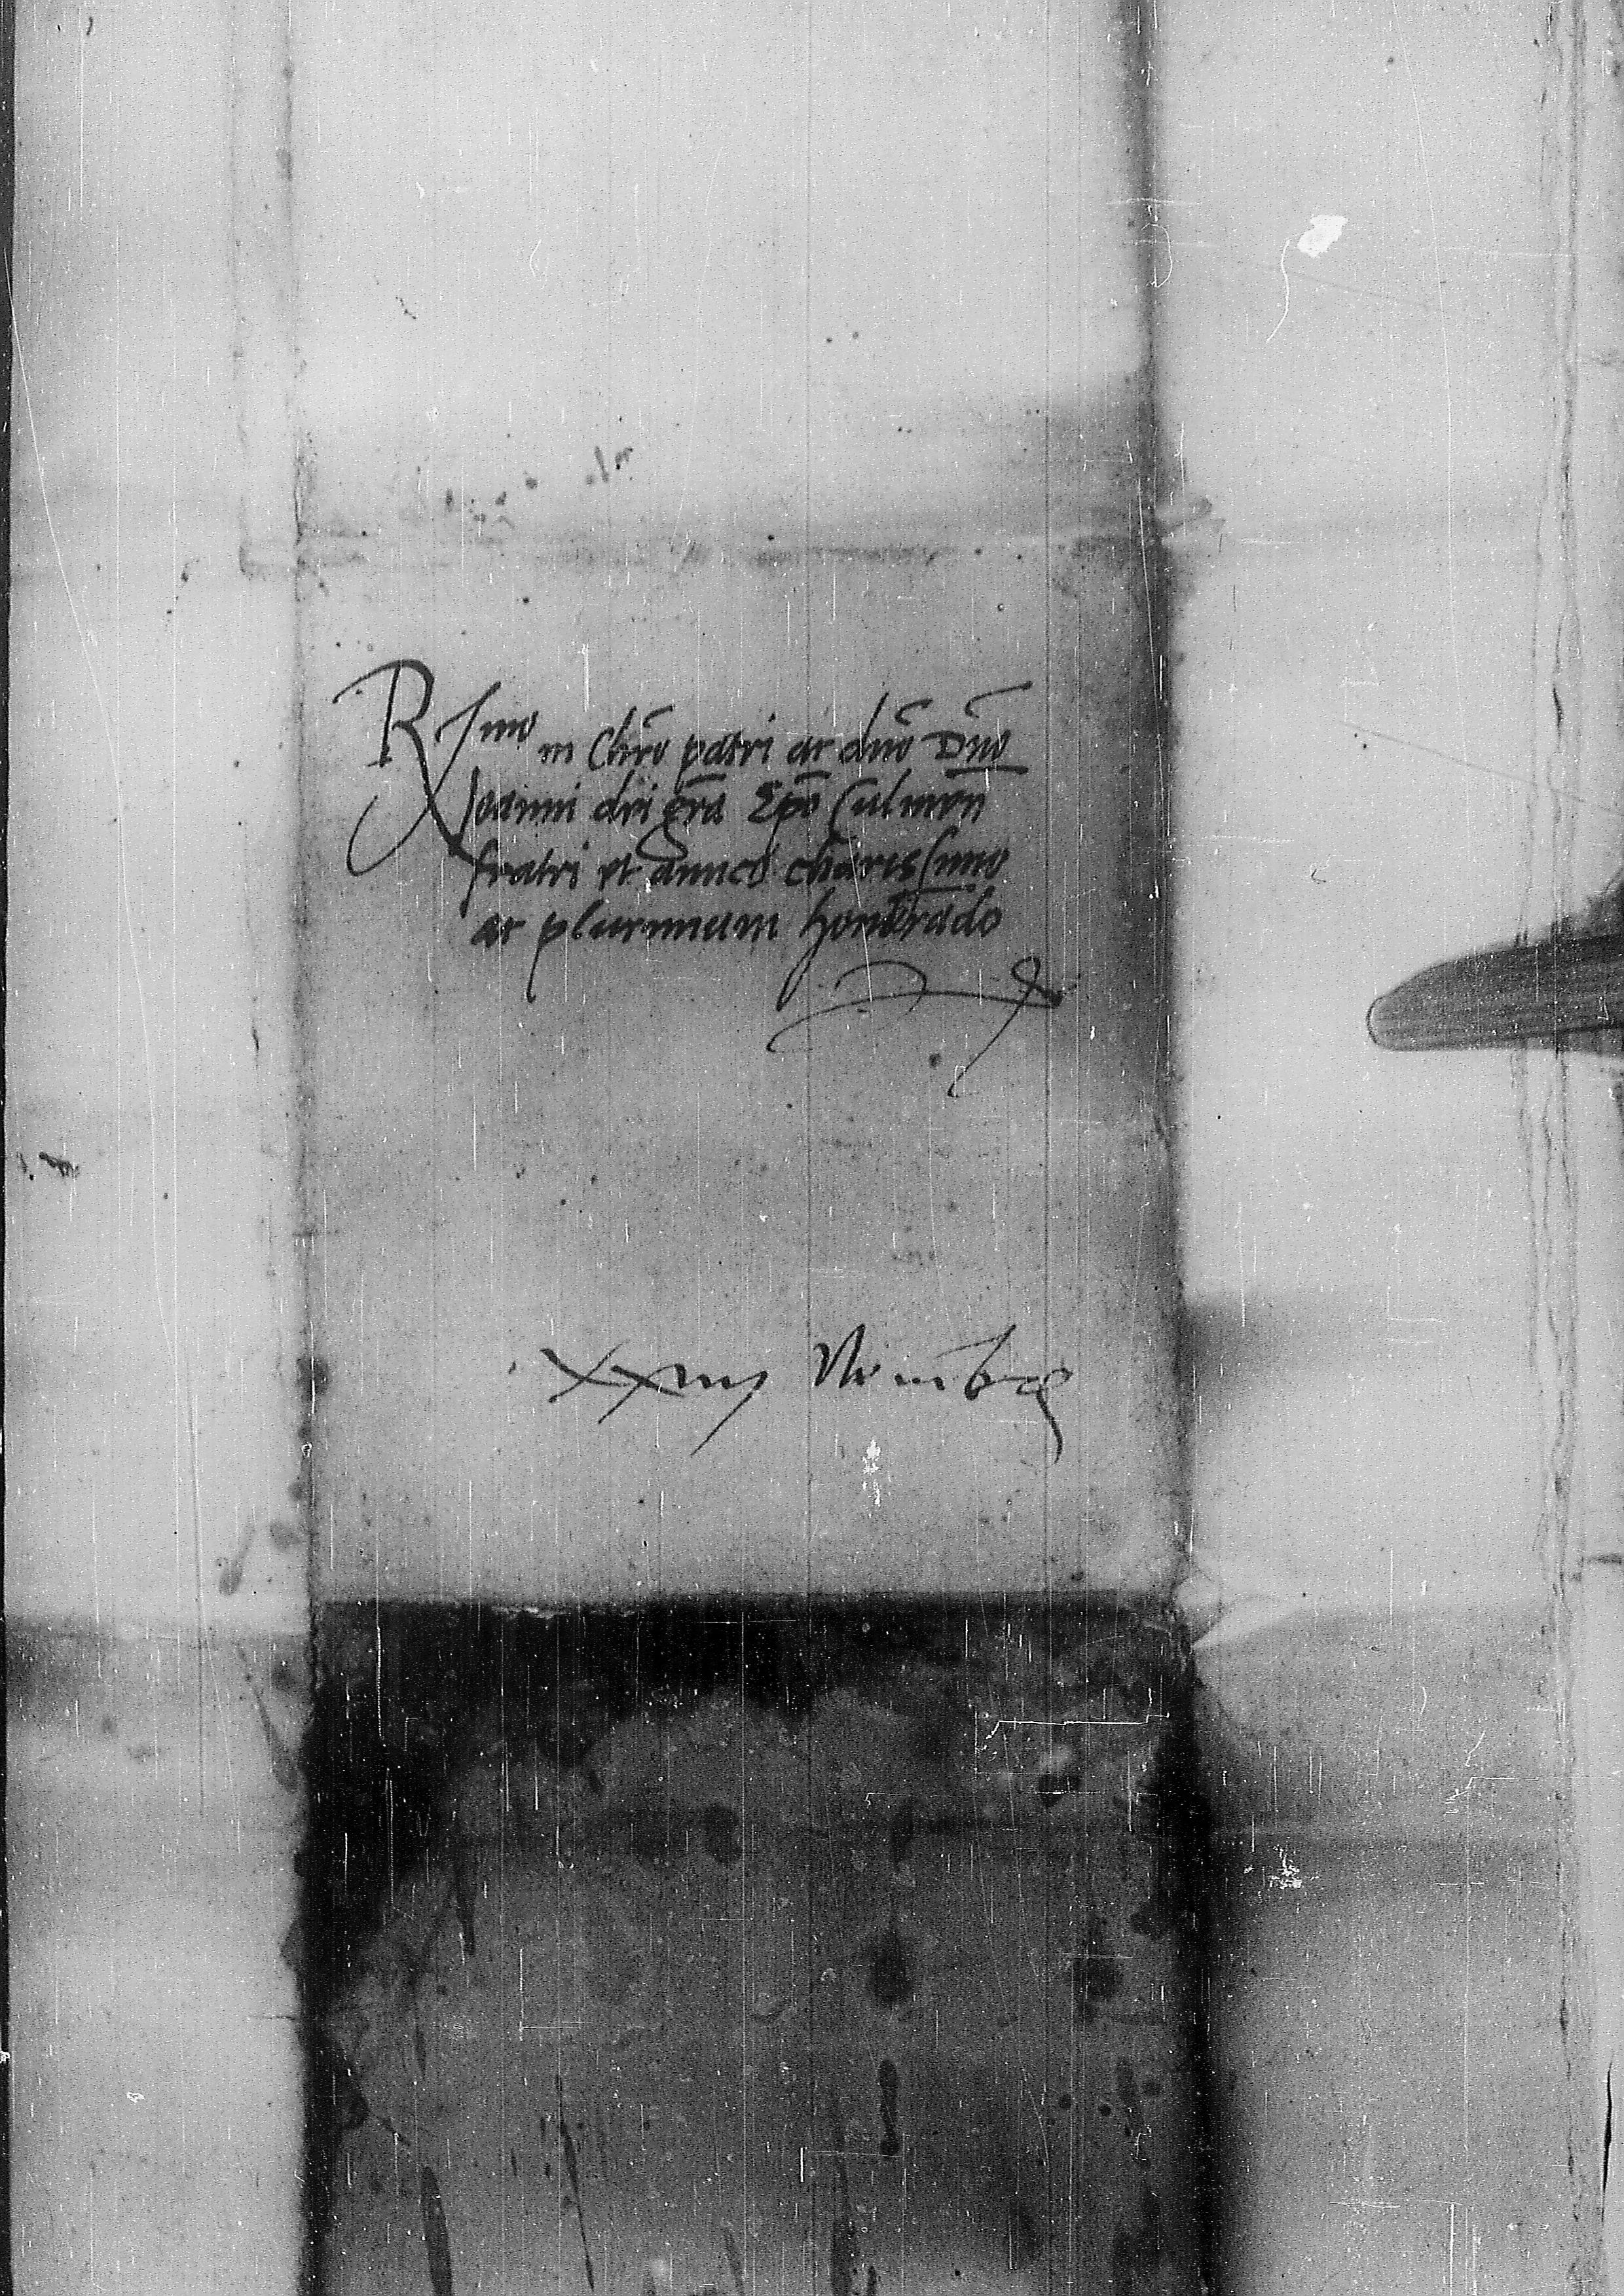 R͞imo in Chr͞o patri ac dn͞o Dn͞o
Joanni dei gr͞a Ep͞o Culmen͞
fratri et amico charissimo
ac plurimum honorado
xxiiij Nouembr